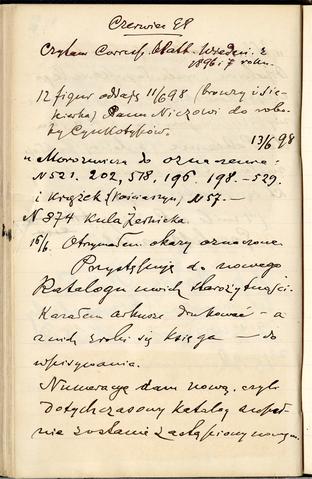 Czerwiec 98
Czytam Corresp. Blatt. Wiedeń. z
1896 i 7 roku.
12 figur oddaję 11/6 98 (bronzy i sie-
kierka) Panu Niczowi do robo-
ty Cynkotypów.
13/6 98
u Morozewicza do oznaczenia:
N 521. 202, 518, 196. 198. – 529.
i krążek (Kościaszyn) N 57. –
N 874 Kula Żernicka.
15/6. Otrzymałem okazy oznaczone
Przystępuję do nowego
Katalogu moich starożytności.
Kazałem arkusze drukować – a
z nich zrobi się księga – do
wpisywania.
Numerację dam nową. czyli
dotychczasowy katalog zupeł-
nie zostanie zastąpiony nowym.